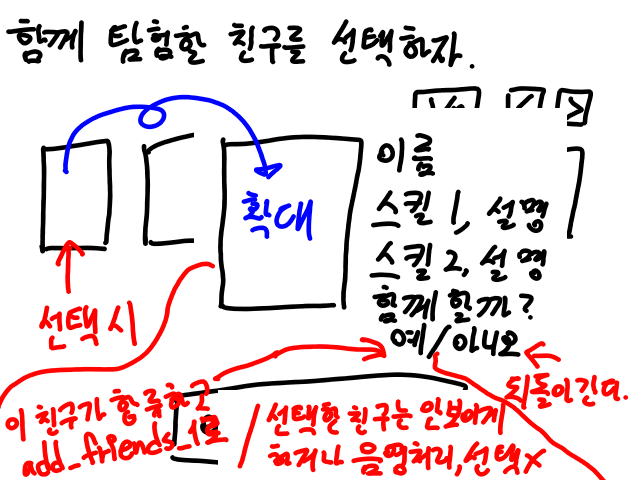 함께 탐험할 친구를 선택하자.
확대
이름
스킬 1, 설명
스킬 2, 설명
함께 할까?
예/아니오
선택 시
되돌아간다.
이 친구가 합류하고
add_friends_1로
/ 선택한 친구는 안보이게
하거나 음영처리, 선택x